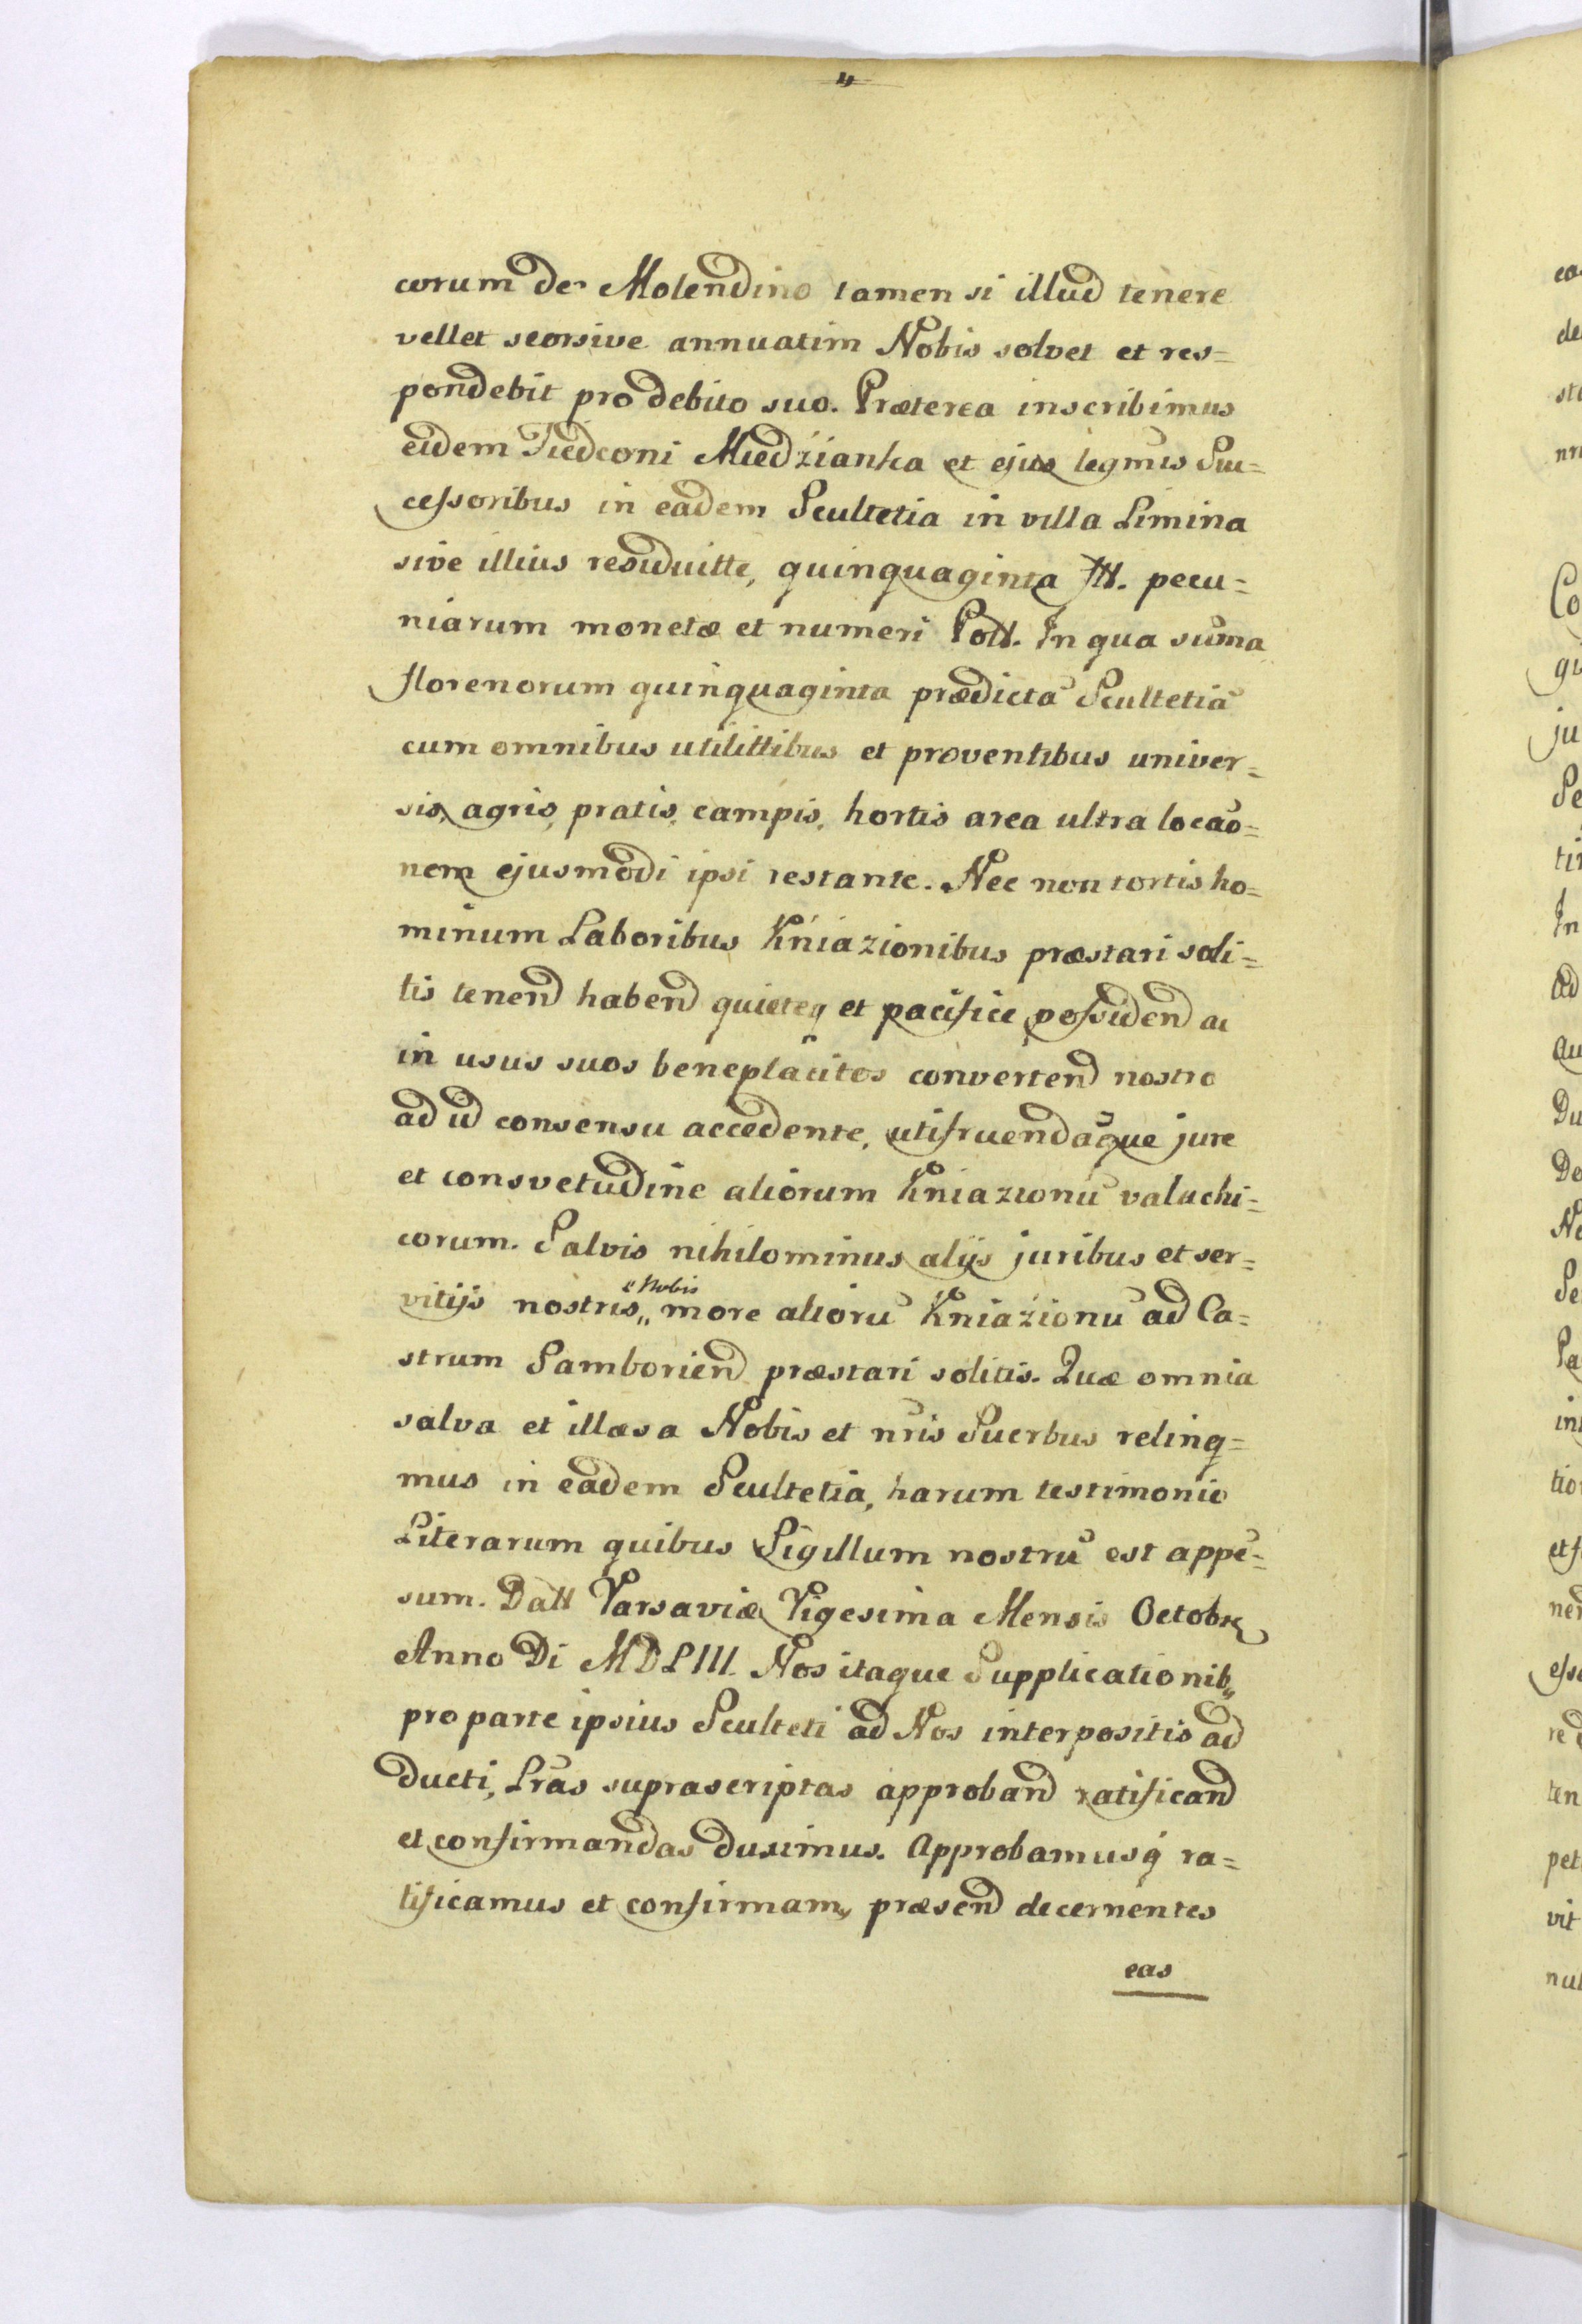 4
corum de Molendino tamen si illud tenere
vellet seorsive annuatim Nobis solvet et res=
pondebit pro debito suo. Præterea inscribimus
eidem Fiedconi Miedzianka et ejus legmis Suc=
cessoribus in eadem Scultetia in villa Limina
sive illius residuitte, quinquaginta fll. pecu=
niarum monetæ et numeri Poll. In qua suma
florenorum quinquaginta prædictā Scultetiā
cum omnibus utilittibus et proventibus univer=
sis, agris, pratis, campis, hortis area ultra locaō=
nem ejusmodi ipsi restante. Nec non tortis ho=
minum Laboribus Kniazionibus præstari soli=
tis tenend habend quieteq et pacifice possidend ac
in usus suos beneplacitos convertend nostro
ad id consensu accedente, utifruendāque jure
et consvetudine aliorum Kniazionū valachi=
corum. Salvis nihilominus alijs juribus et ser=
vitijs nostris,, more aliorū Kniazionū ad Ca=
strum Samboriend præstari solitis. Quæ omnia
salva et illæsa Nobis et nris Sucrbus relinq=
mus in eadem Scultetia, harum testimonio
Literarum quibus Sigillum nostrū est appē=
sum. Datt Varsaviæ Vigesima Mensis Octobr
Anno Di MDLIII. Nos itaque Supplicationib,,
pro parte ipsius Sculteti ad Nos interpositis ad
ducti, Lras suprascriptas approband ratificand
et confirmandas duximus. Approbamusq ra=
tificamus et confirmam, præsend decernentes
eas